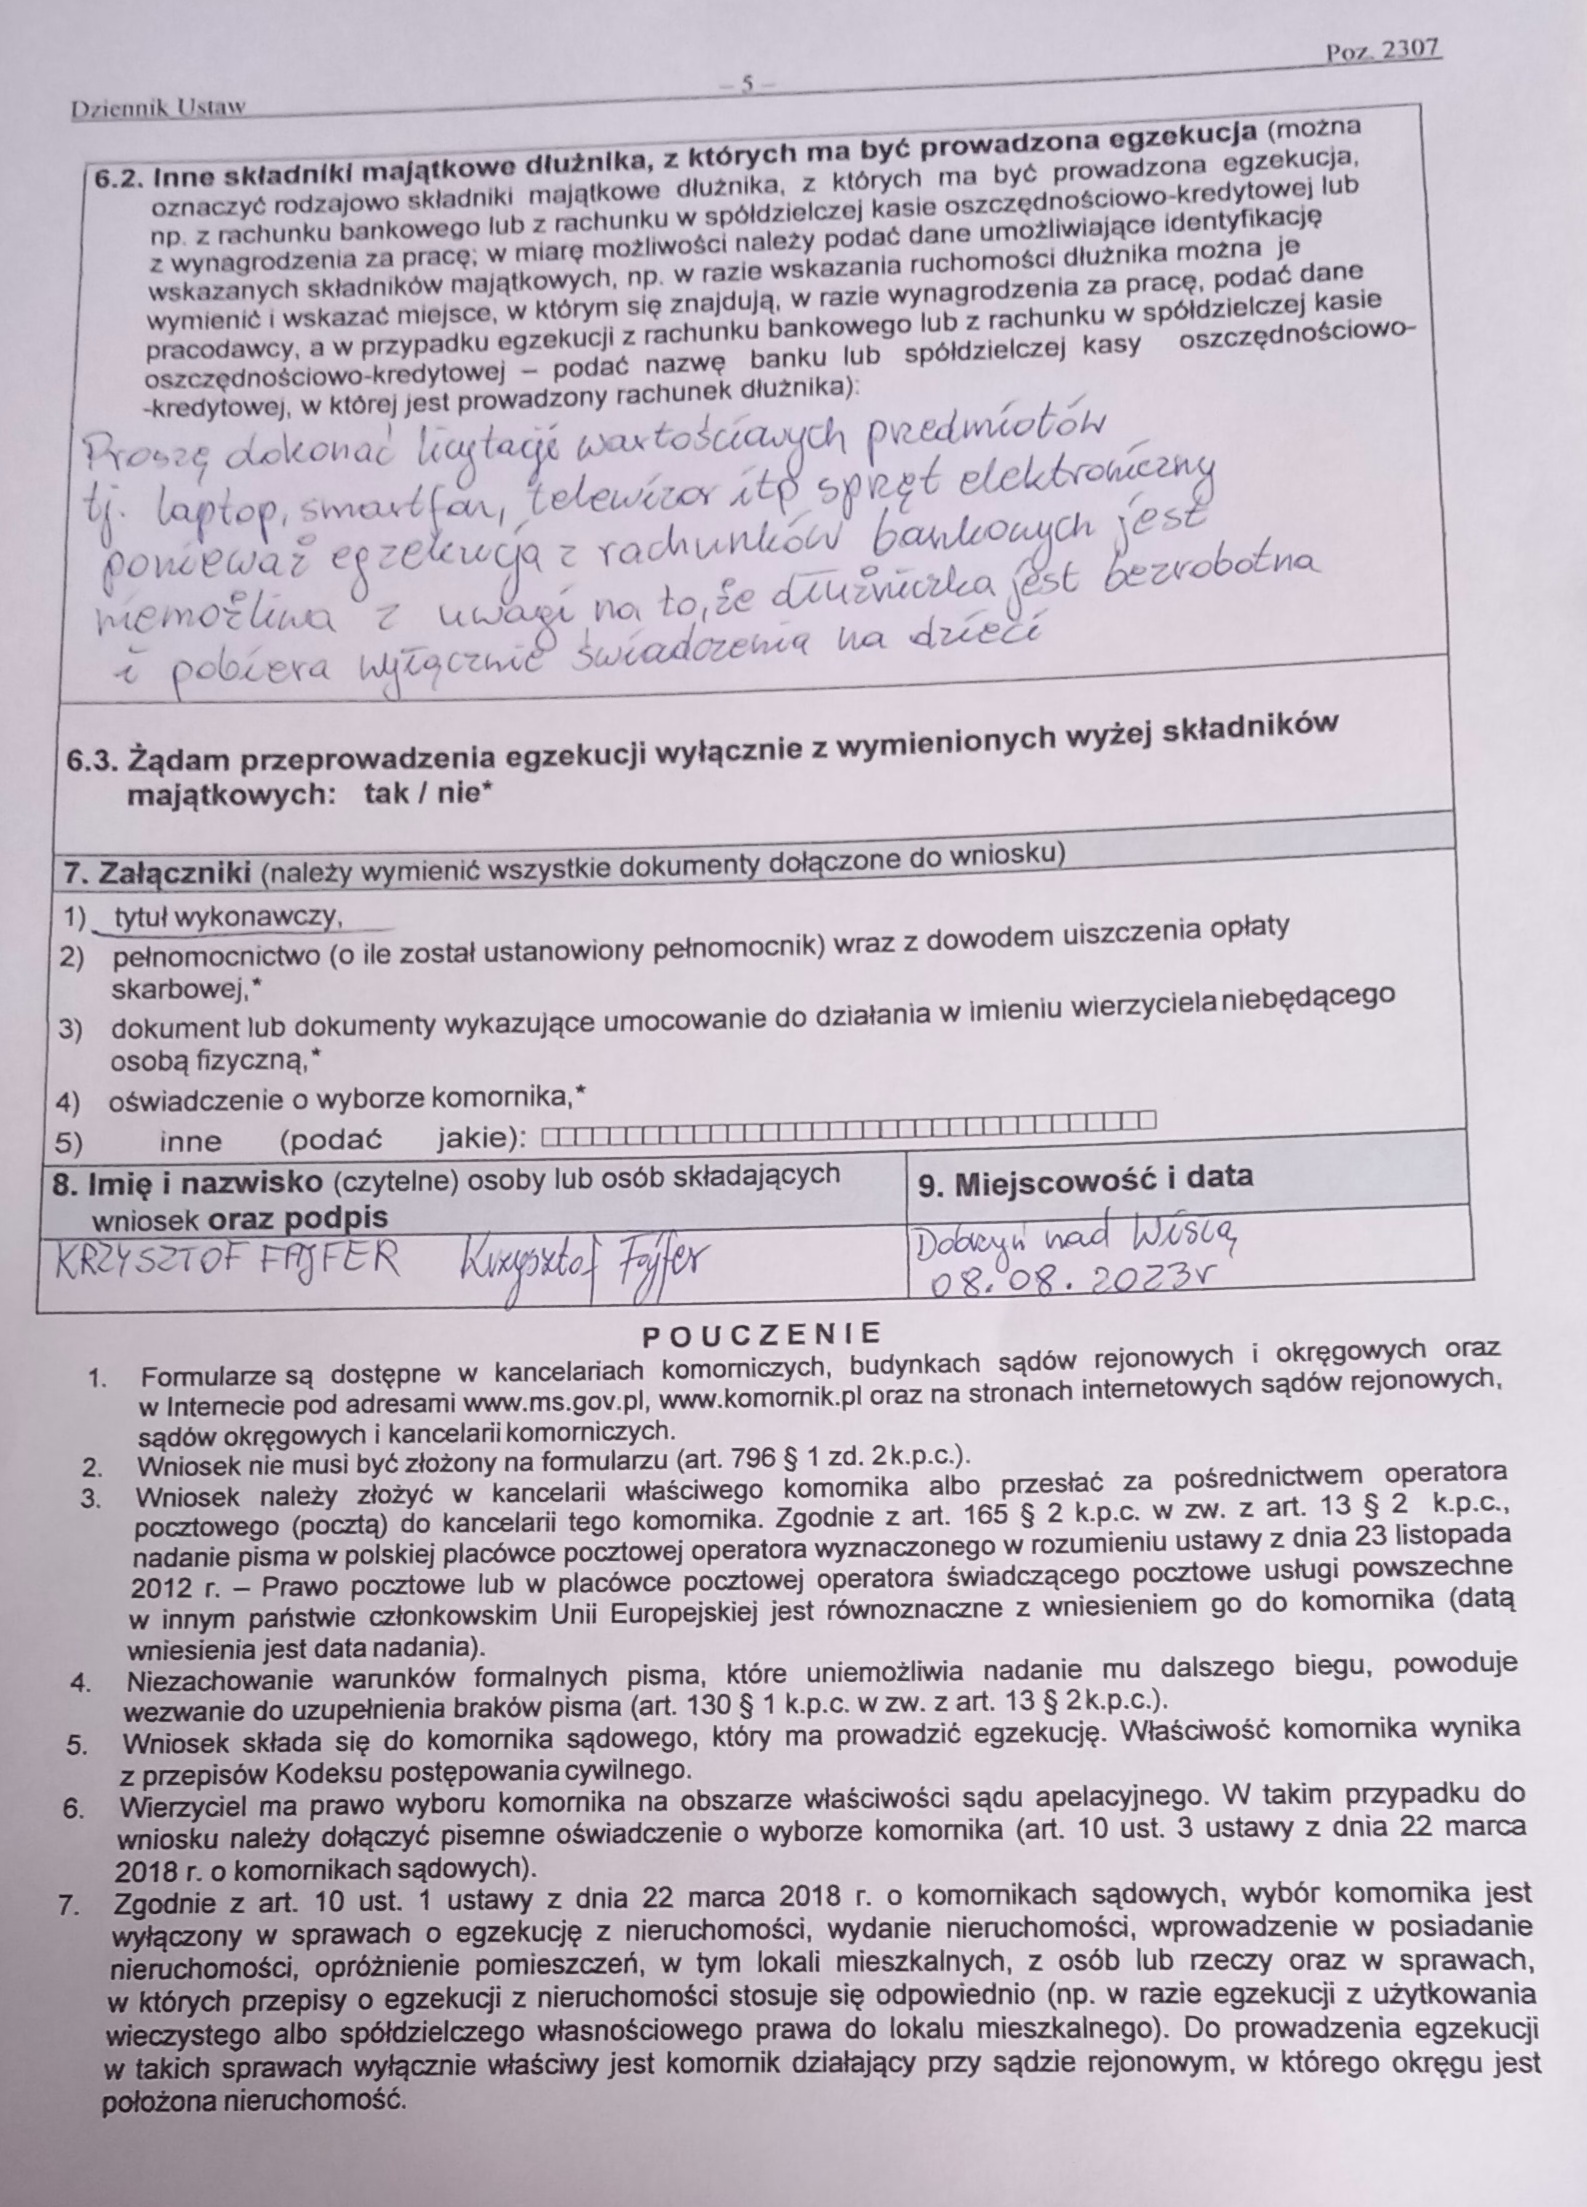 Dziennik Ustaw
– 5 –
Poz. 2307
6.2. Inne składniki majątkowe dłużnika, z których ma być prowadzona egzekucja (można
oznaczyć rodzajowo składniki majątkowe dłużnika, z których ma być prowadzona egzekucja,
np. z rachunku bankowego lub z rachunku w spółdzielczej kasie oszczędnościowo-kredytowej lub
z wynagrodzenia za pracę; w miarę możliwości należy podać dane umożliwiające identyfikację
wskazanych składników majątkowych, np. w razie wskazania ruchomości dłużnika można je
wymienić i wskazać miejsce, w którym się znajdują, w razie wynagrodzenia za pracę, podać dane
pracodawcy, a w przypadku egzekucji z rachunku bankowego lub z rachunku w spółdzielczej kasie
oszczędnościowo-kredytowej – podać nazwę banku lub spółdzielczej kasy oszczędnościowo-
-kredytowej, w której jest prowadzony rachunek dłużnika):
Proszę dokonać licytacji wartościowych przedmiotów
tj. laptop, smartfon, telewizor itp sprzęt elektroniczny
ponieważ egzekucja z rachunków bankowych jest
niemożliwa z uwagi na to, że dłużniczka jest bezrobotna
i pobiera wyłącznie świadczenia na dzieci
6.3. Żądam przeprowadzenia egzekucji wyłącznie z wymienionych wyżej składników
majątkowych: tak / nie*
7. Załączniki (należy wymienić wszystkie dokumenty dołączone do wniosku)
1) tytuł wykonawczy,
2) pełnomocnictwo (o ile został ustanowiony pełnomocnik) wraz z dowodem uiszczenia opłaty
skarbowej,*
3) dokument lub dokumenty wykazujące umocowanie do działania w imieniu wierzyciela niebędącego
osobą fizyczną,*
4) oświadczenie o wyborze komornika,*
5) inne (podać jakie):
8. Imię i nazwisko (czytelne) osoby lub osób składających
wniosek oraz podpis
9. Miejscowość i data
KRZYSZTOF FAJFER Krzysztof Fajfer
Dobrzyń nad Wisłą
08.08.2023r
POUCZENIE
1. Formularze są dostępne w kancelariach komorniczych, budynkach sądów rejonowych i okręgowych oraz
w Internecie pod adresami www.ms.gov.pl, www.komornik.pl oraz na stronach internetowych sądów rejonowych,
sądów okręgowych i kancelarii komorniczych.
2. Wniosek nie musi być złożony na formularzu (art. 796 § 1 zd. 2 k.p.c.).
3. Wniosek należy złożyć w kancelarii właściwego komornika albo przesłać za pośrednictwem operatora
pocztowego (pocztą) do kancelarii tego komornika. Zgodnie z art. 165 § 2 k.p.c. w zw. z art. 13 § 2 k.p.c.,
nadanie pisma w polskiej placówce pocztowej operatora wyznaczonego w rozumieniu ustawy z dnia 23 listopada
2012 r. – Prawo pocztowe lub w placówce pocztowej operatora świadczącego pocztowe usługi powszechne
w innym państwie członkowskim Unii Europejskiej jest równoznaczne z wniesieniem go do komornika (datą
wniesienia jest data nadania).
4. Niezachowanie warunków formalnych pisma, które uniemożliwia nadanie mu dalszego biegu, powoduje
wezwanie do uzupełnienia braków pisma (art. 130 § 1 k.p.c. w zw. z art. 13 § 2 k.p.c.).
5. Wniosek składa się do komornika sądowego, który ma prowadzić egzekucję. Właściwość komornika wynika
z przepisów Kodeksu postępowania cywilnego.
6. Wierzyciel ma prawo wyboru komornika na obszarze właściwości sądu apelacyjnego. W takim przypadku do
wniosku należy dołączyć pisemne oświadczenie o wyborze komornika (art. 10 ust. 3 ustawy z dnia 22 marca
2018 r. o komornikach sądowych).
7. Zgodnie z art. 10 ust. 1 ustawy z dnia 22 marca 2018 r. o komornikach sądowych, wybór komornika jest
wyłączony w sprawach o egzekucję z nieruchomości, wydanie nieruchomości, wprowadzenie w posiadanie
nieruchomości, opróżnienie pomieszczeń, w tym lokali mieszkalnych, z osób lub rzeczy oraz w sprawach,
w których przepisy o egzekucji z nieruchomości stosuje się odpowiednio (np. w razie egzekucji z użytkowania
wieczystego albo spółdzielczego własnościowego prawa do lokalu mieszkalnego). Do prowadzenia egzekucji
w takich sprawach wyłącznie właściwy jest komornik działający przy sądzie rejonowym, w którego okręgu jest
położona nieruchomość.